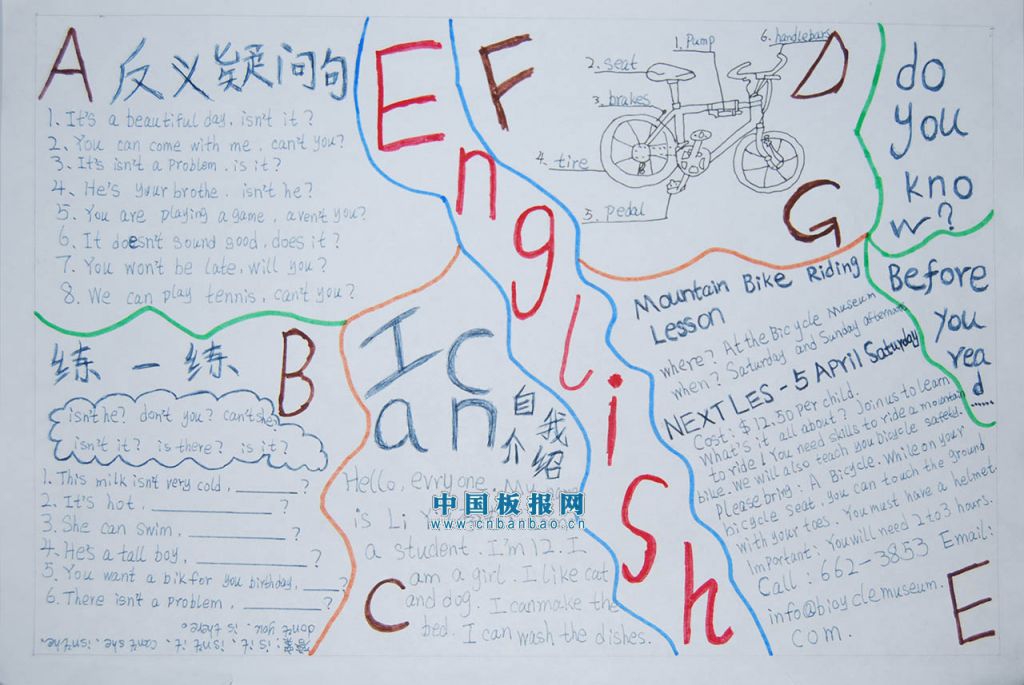 A 反义疑问句
1. It's a beautiful day, isn't it?
2. You can come with me, can't you?
3. It's isn't a problem, is it?
4. He's your brothe, isn't he?
5. You are playing a game, aven't you?
6. It doesn't sound good, does it?
7. You won't be late, will you?
8. We can play tennis, can't you?
练一练
B
isn't he? don't you? can't she
isn't it? is there? is it?
1. This milk isn't very cold, ________?
2. It's hot, ________?
3. She can swim, ________?
4. He's a tall boy, ________?
5. You want a bik for you birthday, ___?
6. There isn't a problem, ________?
答案: is it, isn't it, can't she, isn't he,
don't you, is there。
English
F
I can
自我介绍
Hello, evryone. My
is Li
a student. I'm 12. I
am a girl. I like cat
and dog. I can make the
bed. I can wash the dishes.
C
中国板报网
www.cnbanbao.cn
1. Pump
6. handlebars
2. seat
3. brakes
4. tire
5. pedal
D
G
do
you
kno
w?
Before
you
rea
d......
Mountain Bike Riding
Lesson
where? At the Bicycle Museum
when? Saturday and Sunday afternoon
NEXT LES - 5 April Saturday
Cost: $12.50 per child.
What's it all about? Join us to learn
to ride! You need skills to ride a mountain
bike. We will also teach you bicycle safety.
Please bring: A Bicycle. While on your
bicycle seat, you can touch the ground
with your toes. You must have a helmet.
Important: You will need 2 to 3 hours.
Call: 662-3853 Email:
info@bicyclemuseum.
com.
E